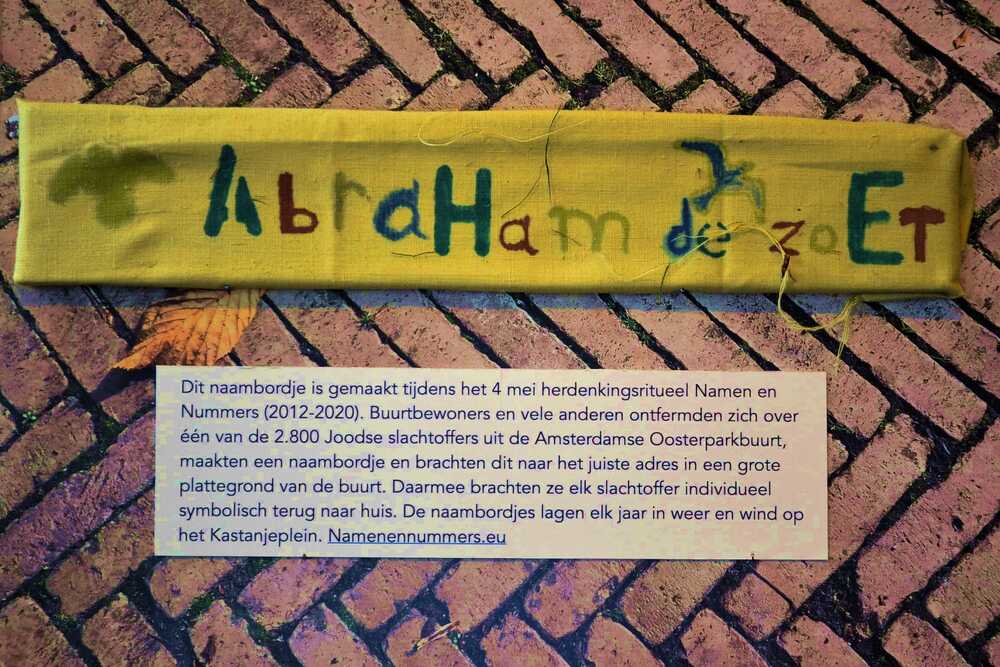 AbraHam de zoET
Dit naambordje is gemaakt tijdens het 4 mei herdenkingsritueel Namen en
Nummers (2012-2020). Buurtbewoners en vele anderen ontfermden zich over
één van de 2.800 Joodse slachtoffers uit de Amsterdamse Oosterparkbuurt,
maakten een naambordje en brachten dit naar het juiste adres in een grote
plattegrond van de buurt. Daarmee brachten ze elk slachtoffer individueel
symbolisch terug naar huis. De naambordjes lagen elk jaar in weer en wind op
het Kastanjeplein. Namenennummers.eu